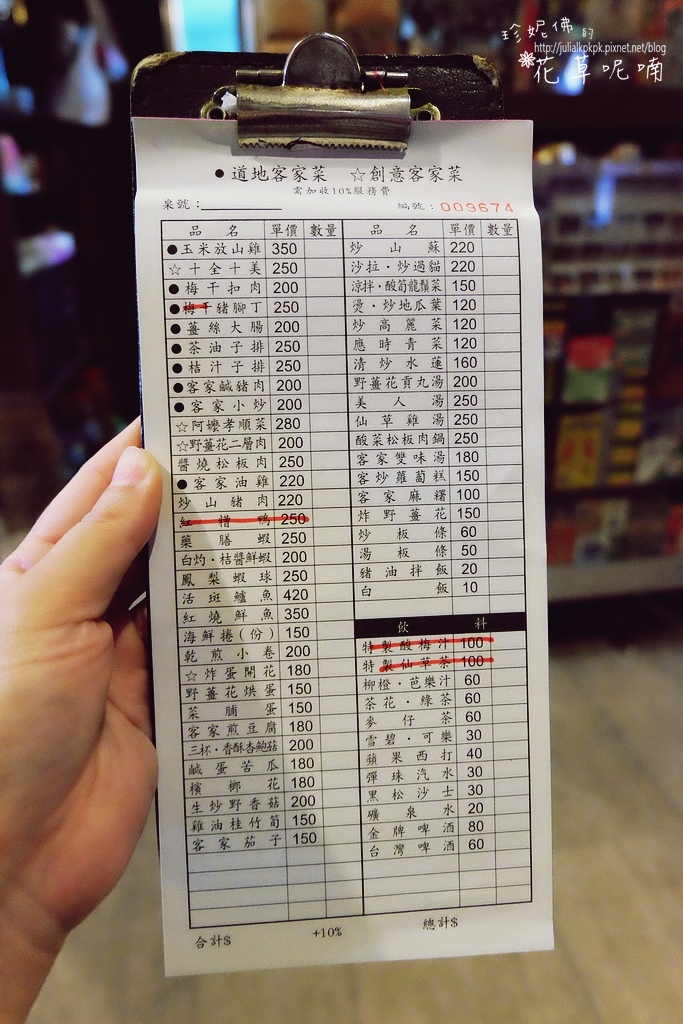 珍妮佛的
http://julialkpkpk.pixnet.net/blog
花草呢喃
●道地客家菜 ☆創意客家菜
需加收10%服務費
桌號：
編號：009674
品名 單價 數量
●玉米放山雞 350
☆十全十美 250
●梅干扣肉 200
●梅干豬腳丁 250
●薑絲大腸 200
●茶油子排 250
●桔汁子排 250
●客家鹹豬肉 200
●客家小炒 200
☆阿嬤孝順菜 280
☆野薑花二層肉 200
醬燒松板肉 250
●客家油雞 220
炒山豬肉 220
紅糟鴨 250
藥膳蝦 250
白灼·桔醬鮮蝦 200
鳳梨蝦球 250
活斑鱸魚 420
紅燒鮮魚 350
海鮮捲(份) 150
乾煎小卷 200
☆炸蛋開花 180
野薑花烘蛋 150
菜脯蛋 150
客家煎豆腐 180
三杯·香酥杏鮑菇 200
鹹蛋苦瓜 180
檳榔花 180
生炒野香菇 200
雞油桂竹筍 150
客家茄子 150
品名 單價 數量
炒山蘇 220
沙拉·炒過貓 220
涼拌·酸筍龍鬚菜 150
燙·炒地瓜葉 120
炒高麗菜 120
應時青菜 120
清炒水蓮 160
野薑花貢丸湯 200
美人湯 250
仙草雞湯 250
酸菜松板肉鍋 250
客家雙味湯 180
客炒蘿蔔糕 150
客家麻糬 100
炸野薑花 150
炒板條 60
湯板條 50
豬油拌飯 20
白飯 10
飲料
特製酸梅汁 100
特製仙草茶 100
柳橙·芭樂汁 60
茶花·綠茶 60
麥仔茶 60
雪碧·可樂 30
蘋果西打 40
彈珠汽水 30
黑松沙士 30
礦泉水 20
金牌啤酒 80
台灣啤酒 60
合計$ +10% 總計$